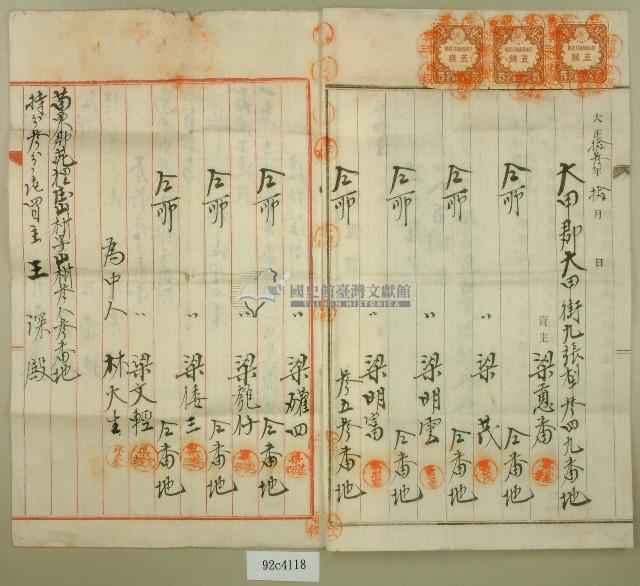 五錢
五錢
五錢
大正拾年拾月 日
賣主
大甲郡大甲街九張犁參四九番地
梁意番
仝所 仝番地
〃 梁茂
仝所 仝番地
〃 梁明雲
仝所 仝番地
〃 梁明富
仝所 參五參番地
〃 梁瓏四
仝所 仝番地
〃 梁龍仔
仝所 仝番地
〃 梁矮三
仝所 仝番地
〃 梁文輕
為中人 林火生
番地
持分參分之壹買主 王深殿
國史館臺灣文獻館
TAIWAN HISTORICA
92c4118